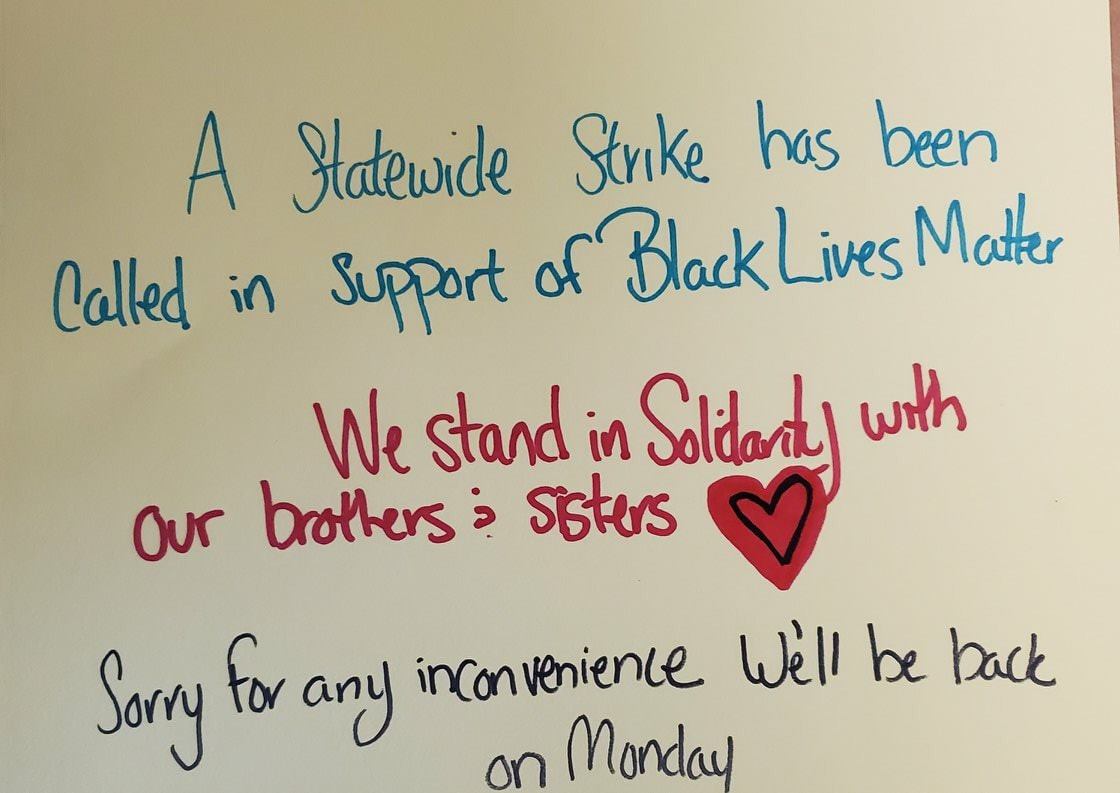 A Statewide Strike has been
Called in support of Black Lives Matter
We stand in Solidarity with
our brothers & sisters
Sorry for any inconvenience We'll be back
on Monday